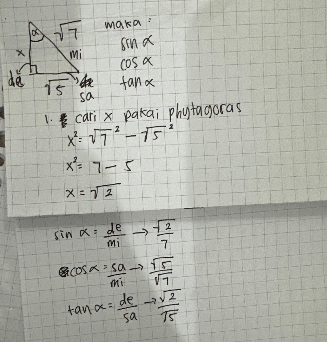 α √7 maka :
x mi sin α
de cos α
√5 sa tan α
1. cari x pakai phytagoras
x² = √7² - √5²
x² = 7 - 5
x = √2
sin α = de/mi → √2/7
cos α = sa/mi → √5/√7
tan α = de/sa → √2/√5